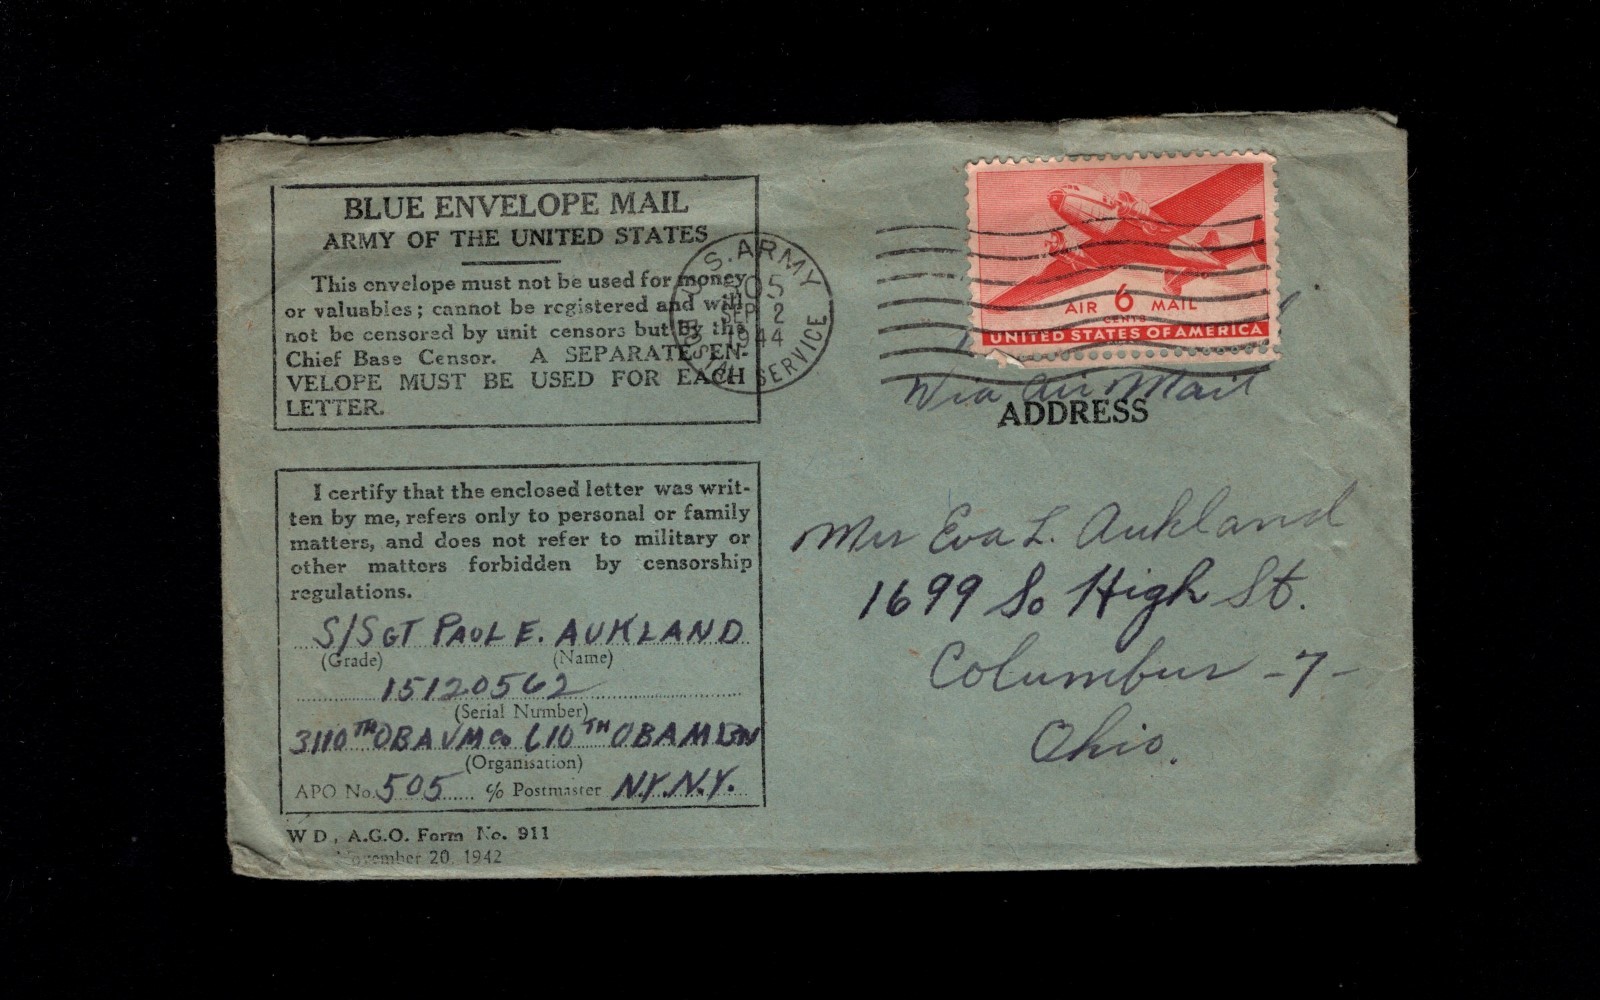 BLUE ENVELOPE MAIL
ARMY OF THE UNITED STATES
This envelope must not be used for money
or valuables; cannot be registered and will
not be censored by unit censors but by the
Chief Base Censor. A SEPARATE EN-
VELOPE MUST BE USED FOR EACH
LETTER.
U.S. ARMY
505
SEP 2
1944
POSTAL SERVICE
AIR 6 MAIL
CENTS
UNITED STATES OF AMERICA
Via Air Mail
ADDRESS
I certify that the enclosed letter was writ-
ten by me, refers only to personal or family
matters, and does not refer to military or
other matters forbidden by censorship
regulations.
S/SGT PAUL E. AUKLAND
(Grade) (Name)
15120562
(Serial Number)
3110TH OBAVM Co (10TH OBAM BN
(Organisation)
APO No. 505 c/o Postmaster N.Y. N.Y.
W D, A.G.O. Form No. 911
November 20, 1942
Mrs Eva L. Aukland
1699 So High St.
Columbus -7-
Ohio.